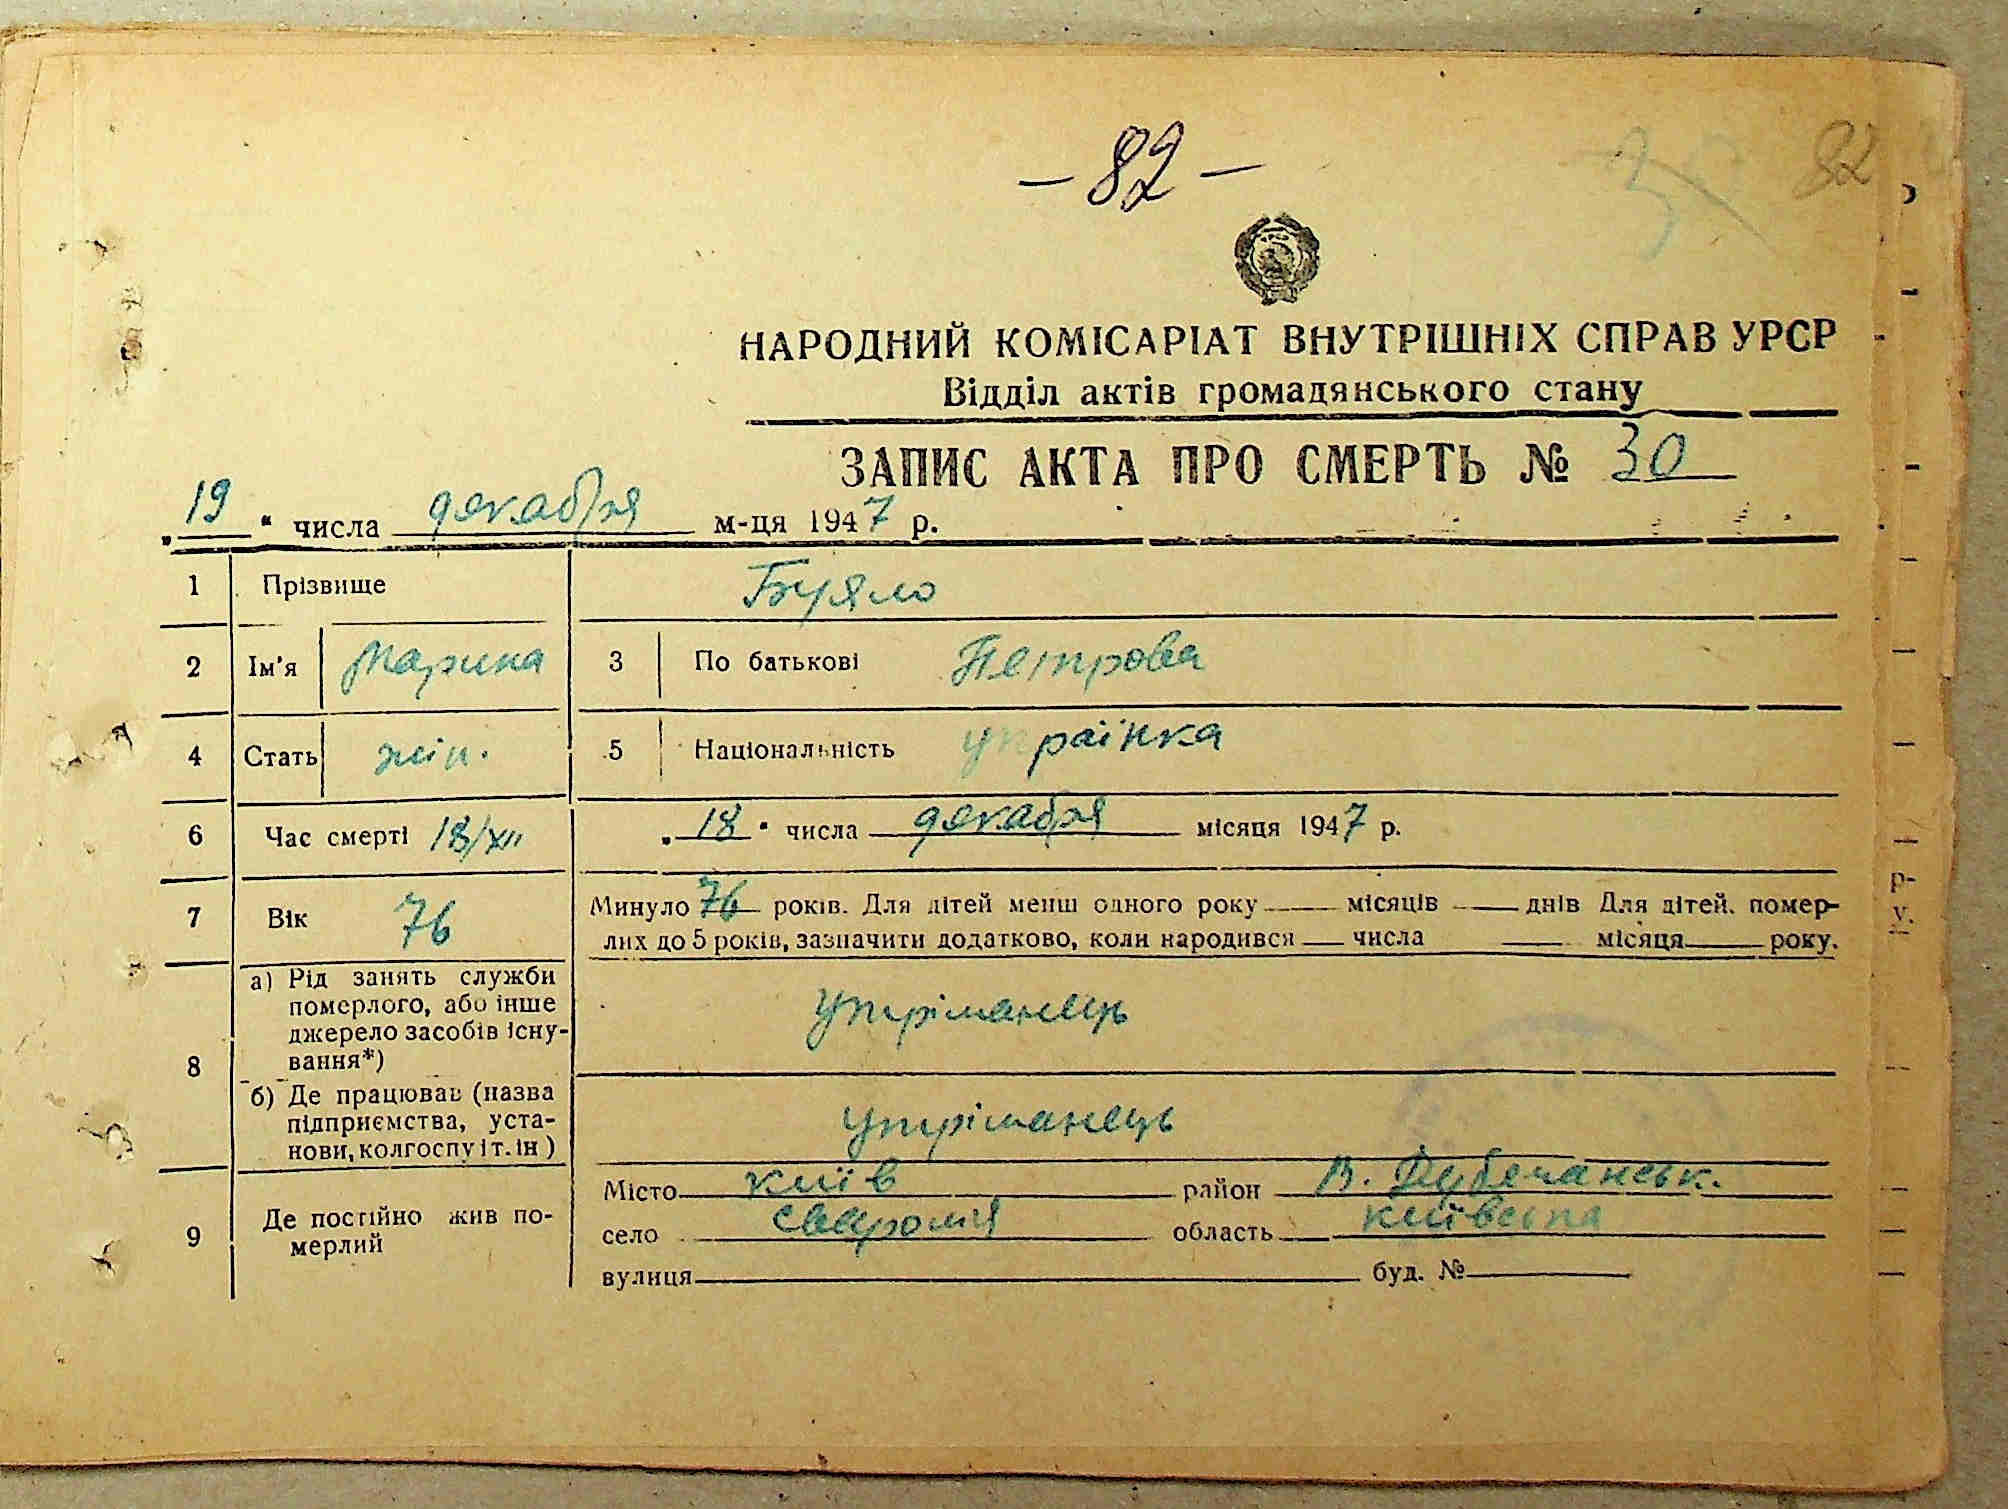 – 82 –
82
НАРОДНИЙ КОМІСАРІАТ ВНУТРІШНІХ СПРАВ УРСР
Відділ актів громадянського стану
ЗАПИС АКТА ПРО СМЕРТЬ № 30
„19“ числа декабря м-ця 1947 р.
1 Прізвище Буяло
2 Ім'я Марина 3 По батькові Петрова
4 Стать жін. 5 Національність украінка
6 Час смерті 18/XII „18“ числа декабря місяця 1947 р.
7 Вік 76 Минуло 76 років. Для дітей менш одного року місяців днів Для дітей. помер-
лих до 5 років, зазначити додатково, коли народився числа місяця року.
8 а) Рід занять служби
померлого, або інше
джерело засобів існу-
вання*) утріманець
б) Де працював (назва
підприємства, уста-
нови, колгоспу і т. ін) утріманець
9 Де постійно жив по-
мерлий
Місто київ район В. Дубечанськ.
село область київська
вулиця буд. №